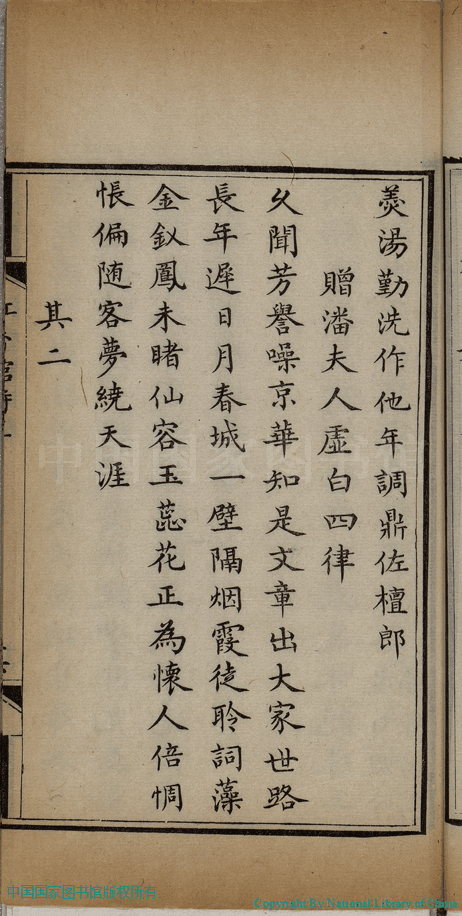 羮湯勤洗作他年調鼎佐檀郎
贈潘夫人虛白四律
久聞芳譽噪京華知是文章出大家世路
長年遲日月春城一壁隔烟霞徒聆詞藻
金釵鳳未睹仙容玉蕊花正為懷人倍惆
悵偏随客夢繞天涯
其二
中国国家图书馆版权所有
Copyright By National Library of China